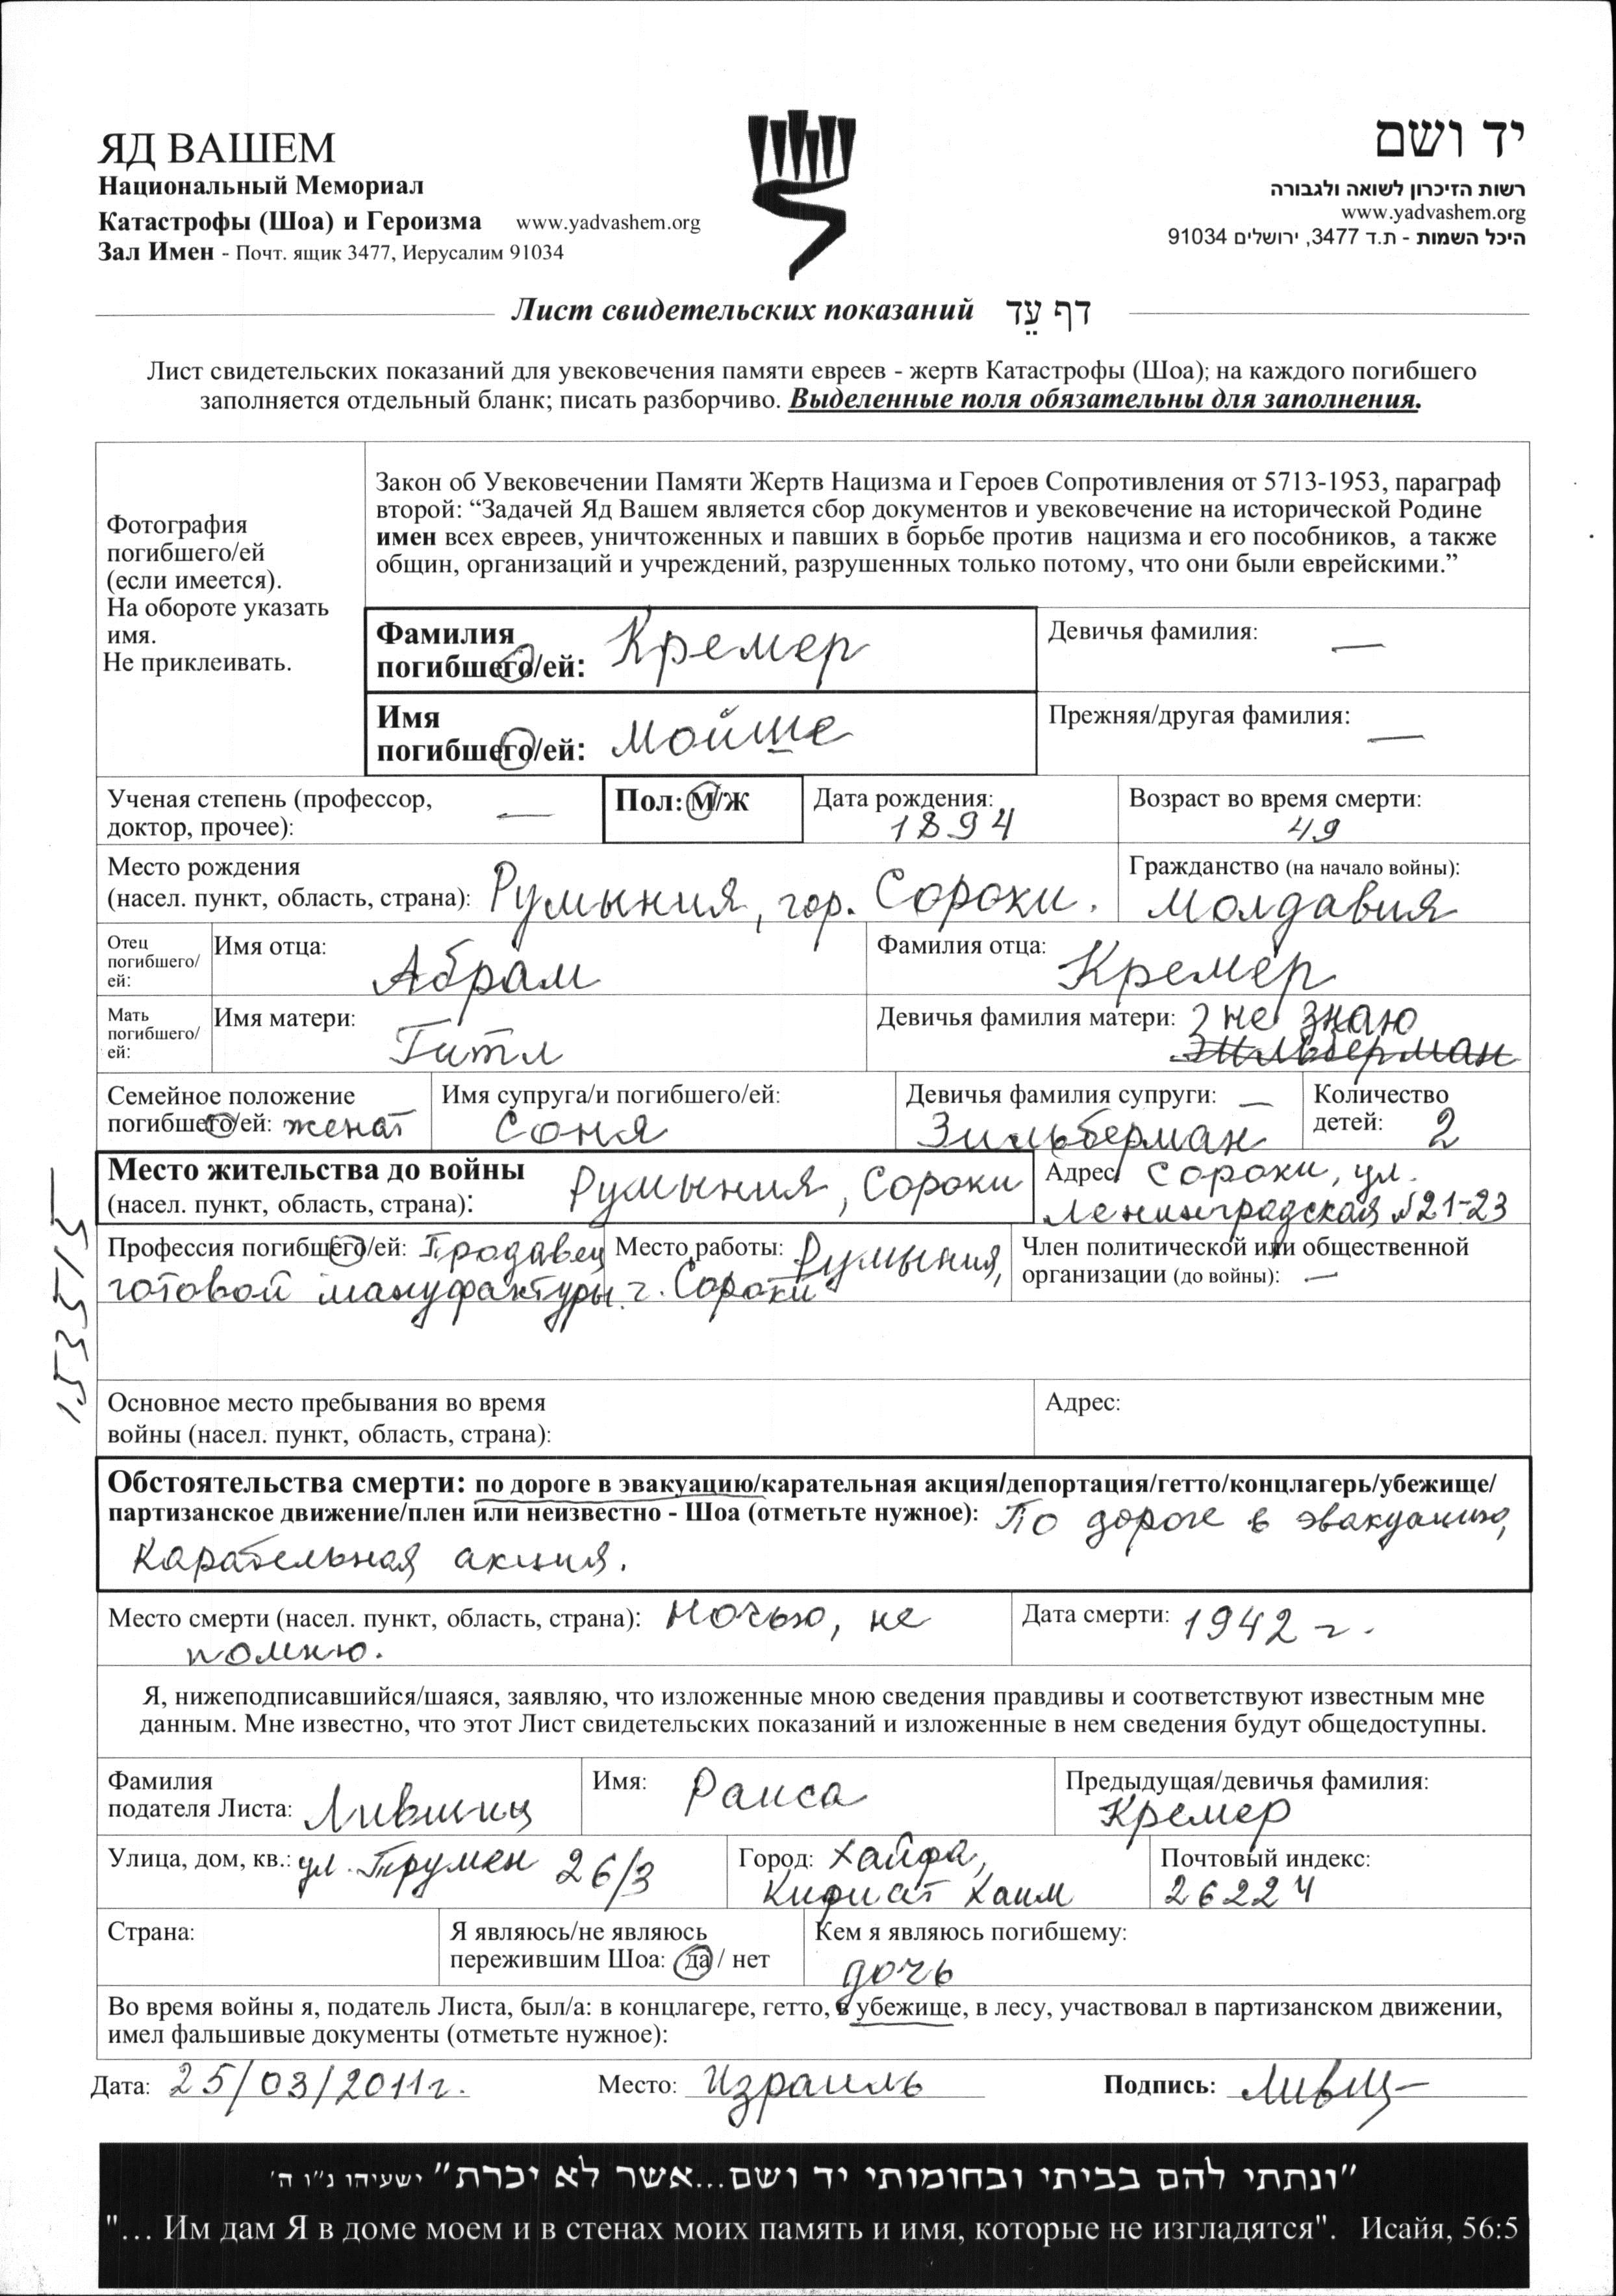 ЯД ВАШЕМ
Национальный Мемориал
Катастрофы (Шоа) и Героизма www.yadvashem.org
Зал Имен - Почт. ящик 3477, Иерусалим 91034
יד ושם
רשות הזיכרון לשואה ולגבורה
www.yadvashem.org
היכל השמות - ת.ד 3477, ירושלים 91034
Лист свидетельских показаний דף עֵד
Лист свидетельских показаний для увековечения памяти евреев - жертв Катастрофы (Шоа); на каждого погибшего
заполняется отдельный бланк; писать разборчиво. Выделенные поля обязательны для заполнения.
Фотография
погибшего/ей
(если имеется).
На обороте указать
имя.
Не приклеивать.
Закон об Увековечении Памяти Жертв Нацизма и Героев Сопротивления от 5713-1953, параграф
второй: “Задачей Яд Вашем является сбор документов и увековечение на исторической Родине
имен всех евреев, уничтоженных и павших в борьбе против нацизма и его пособников, а также
общин, организаций и учреждений, разрушенных только потому, что они были еврейскими.”
Фамилия
погибшего/ей: Кремер
Девичья фамилия: —
Имя
погибшего/ей: Мойше
Прежняя/другая фамилия: —
Ученая степень (профессор,
доктор, прочее): —
Пол: М/Ж
Дата рождения:
1894
Возраст во время смерти:
49
Место рождения
(насел. пункт, область, страна): Румыния, гор. Сороки.
Гражданство (на начало войны):
Молдавия
Отец
погибшего/
ей:
Имя отца:
Абрам
Фамилия отца:
Кремер
Мать
погибшего/
ей:
Имя матери:
Гитл
Девичья фамилия матери: не знаю
Зильберман
Семейное положение
погибшего/ей: женат
Имя супруга/и погибшего/ей:
Соня
Девичья фамилия супруги: —
Зильберман
Количество
детей: 2
Место жительства до войны
(насел. пункт, область, страна): Румыния, Сороки
Адрес: Сороки, ул.
Ленинградская №21-23
Профессия погибшего/ей: Продавец
готовой мануфактуры.
Место работы: Румыния,
г. Сороки
Член политической или общественной
организации (до войны): —
153515
Основное место пребывания во время
войны (насел. пункт, область, страна):
Адрес:
Обстоятельства смерти: по дороге в эвакуацию/карательная акция/депортация/гетто/концлагерь/убежище/
партизанское движение/плен или неизвестно - Шоа (отметьте нужное): По дороге в эвакуацию,
Карательная акция.
Место смерти (насел. пункт, область, страна): Ночью, не
помню.
Дата смерти: 1942 г.
Я, нижеподписавшийся/шаяся, заявляю, что изложенные мною сведения правдивы и соответствуют известным мне
данным. Мне известно, что этот Лист свидетельских показаний и изложенные в нем сведения будут общедоступны.
Фамилия
подателя Листа: Лившиц
Имя: Раиса
Предыдущая/девичья фамилия:
Кремер
Улица, дом, кв.: ул. Трумен 26/3
Город: Хайфа,
Кириат Хаим
Почтовый индекс:
26224
Страна:
Я являюсь/не являюсь
пережившим Шоа: да / нет
Кем я являюсь погибшему:
дочь
Во время войны я, податель Листа, был/а: в концлагере, гетто, в убежище, в лесу, участвовал в партизанском движении,
имел фальшивые документы (отметьте нужное):
Дата: 25/03/2011г. Место: Израиль Подпись: Ливщ
"ונתתי להם בביתי ובחומותי יד ושם...אשר לא יכרת" ישעיהו נ"ו ה'
"... Им дам Я в доме моем и в стенах моих память и имя, которые не изгладятся". Исайя, 56:5